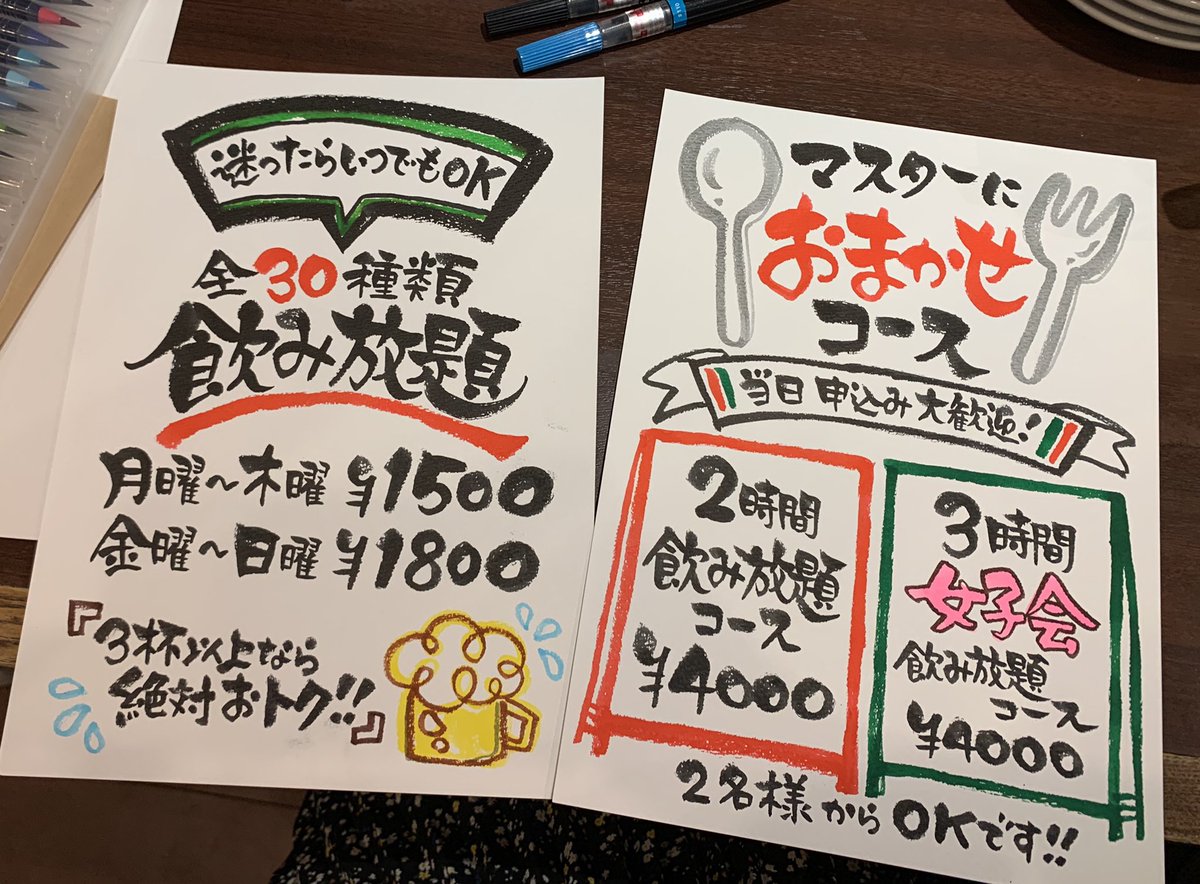 迷ったらいつでもOK
全30種類
飲み放題
月曜〜木曜 ¥1500
金曜〜日曜 ¥1800
『3杯以上なら
絶対おトク!!』
マスターに
おまかせ
コース
当日申込み大歓迎!
2時間
飲み放題
コース
¥4000
3時間
女子会
飲み放題
コース
¥4000
2名様からOKです!!